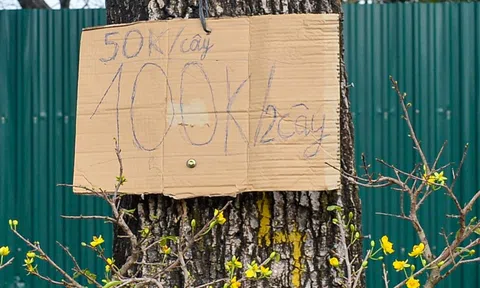 50K/cây
100K/2cây